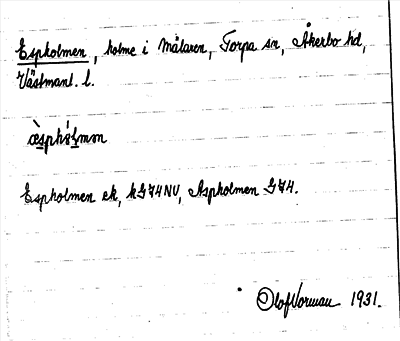 Espholmen, holme i Mälaren, Torpa sn, Åkerbo hd,
Västmanl. l.
æ̀sphól̥mm̥
Espholmen ek, kG74NV, Aspholmen G74.
Olof Norman 1931.